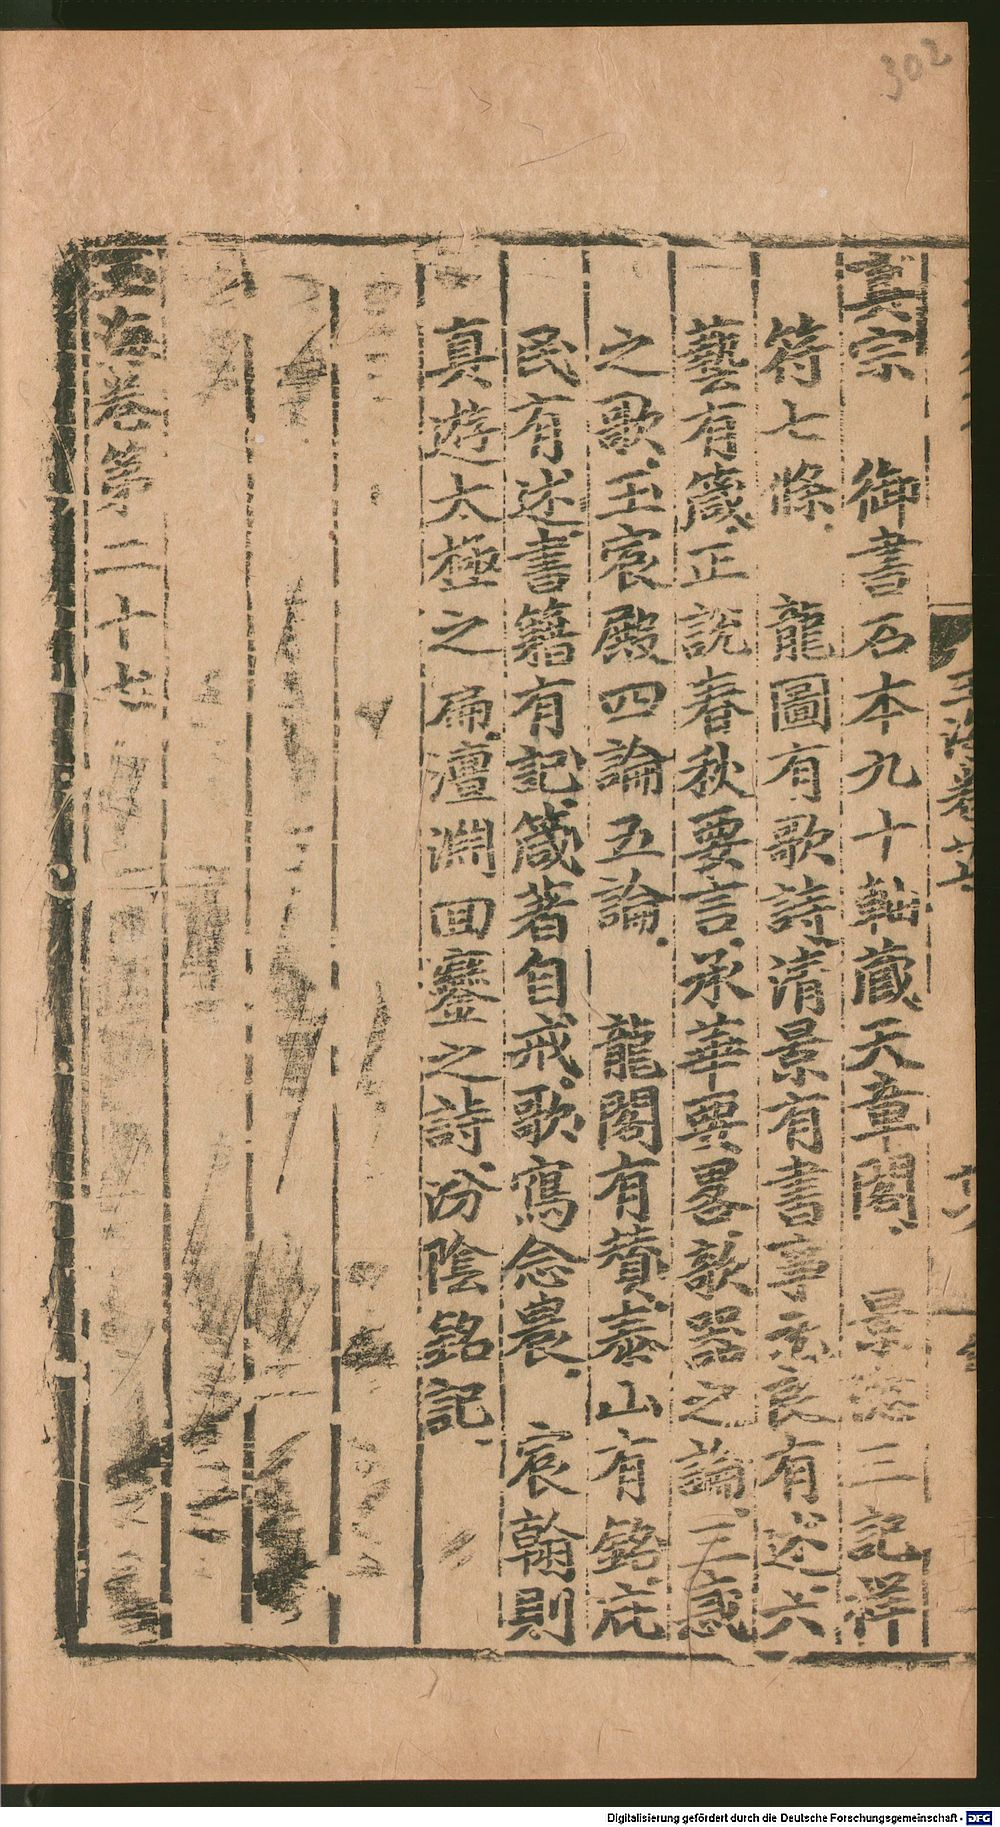 302
真宗　御書石本九十軸藏天章閣　景德三記祥
符七條　龍圖有歌詩清景有書事忠良有述六
藝有箴正說春秋要言承華要畧欹器之論三惑
之歌玉宸殿四論五論　龍閣有贊泰山有銘庇
民有述書籍有記箴著自戒歌寫念農　宸翰則
真遊太極之扁澶淵囬鑾之詩汾陰銘記
玉海卷第二十七
Digitalisierung gefördert durch die Deutsche Forschungsgemeinschaft - DFG